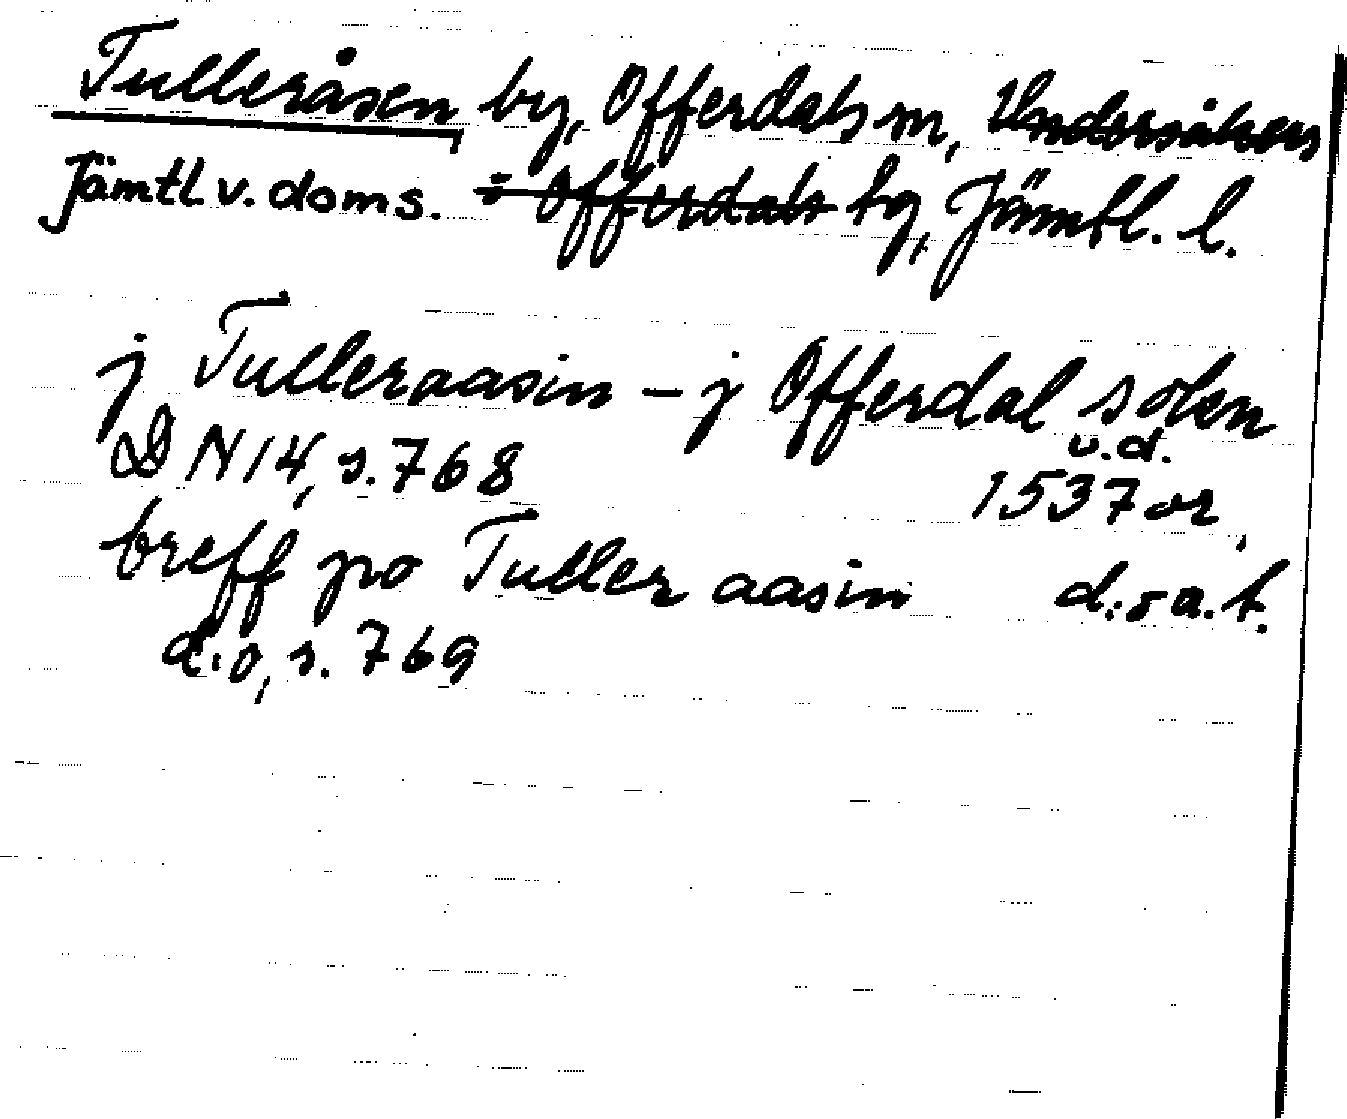 Tulleråsen by, Offerdals sn, Undersåkers
Jämtl. v. doms. i Offerdals tg, Jämtl. l.
j Tulleraasin – j Offerdal sokn
u.d.
DN 14, s. 768 1537 or,
breff po Tuller aasin d:o a.t.
d.o, s. 769